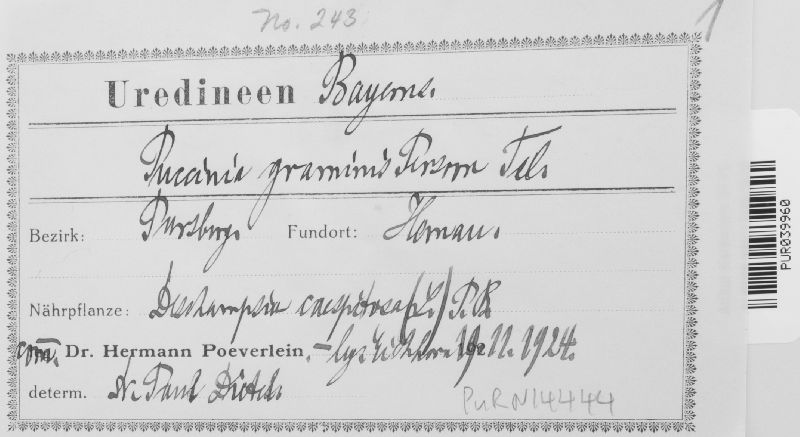 No. 243
1
Uredineen Bayerns.
Puccinia graminis Persoon Tel.
Bezirk: Parsberg. Fundort: Hemau.
Nährpflanze: Deschampsia caespitosa (L.) P.B.
com. Dr. Hermann Poeverlein. – 19. 11. 1924.
determ. Dr. Paul Dietel.
PURN14444
PUR039960